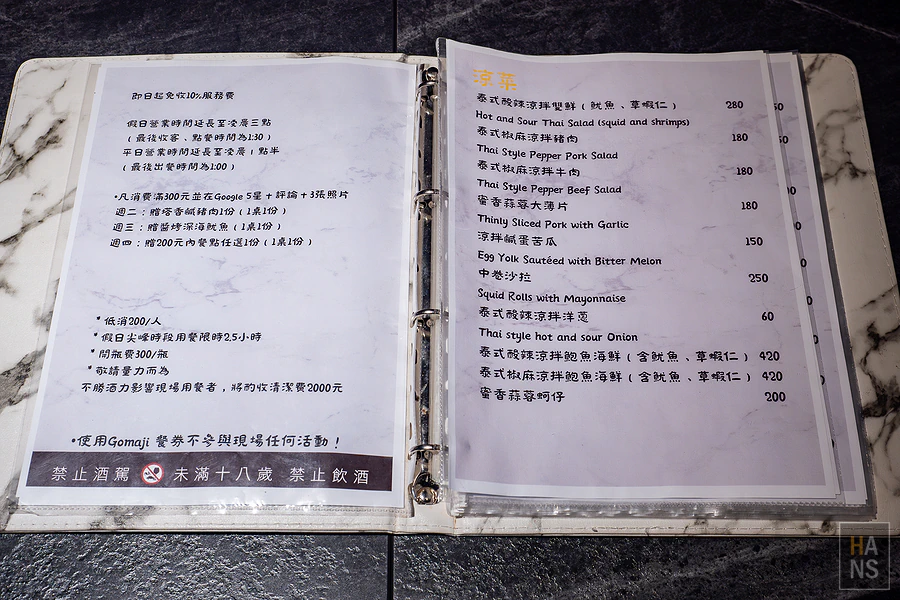 即日起免收10%服務費
假日營業時間延長至凌晨三點
(最後收客、點餐時間為1:30)
平日營業時間延長至凌晨1點半
(最後出餐時間為1:00)
•凡消費滿300元並在Google 5星+評論+3張照片
週二:贈塔香鹹豬肉1份(1桌1份)
週三:贈醬烤深海魷魚(1桌1份)
週四:贈200元內餐點任選1份(1桌1份)
*低消200/人
*假日尖峰時段用餐限時2.5小時
*開瓶費300/瓶
*敬請量力而為
不勝酒力影響現場用餐者,將酌收清潔費2000元
•使用Gomaji 餐券不參與現場任何活動!
禁止酒駕 未滿十八歲 禁止飲酒
涼菜
泰式酸辣涼拌雙鮮(魷魚、草蝦仁) 280
Hot and Sour Thai Salad (squid and shrimps)
泰式椒麻涼拌豬肉 180
Thai Style Pepper Pork Salad
泰式椒麻涼拌牛肉 180
Thai Style Pepper Beef Salad
蜜香蒜蓉大薄片 180
Thinly Sliced Pork with Garlic
涼拌鹹蛋苦瓜 150
Egg Yolk Sautéed with Bitter Melon
中卷沙拉 250
Squid Rolls with Mayonnaise
泰式酸辣涼拌洋蔥 60
Thai style hot and sour Onion
泰式酸辣涼拌鮑魚海鮮(含魷魚、草蝦仁) 420
泰式椒麻涼拌鮑魚海鮮(含魷魚、草蝦仁) 420
蜜香蒜蓉蚵仔 200
HANS